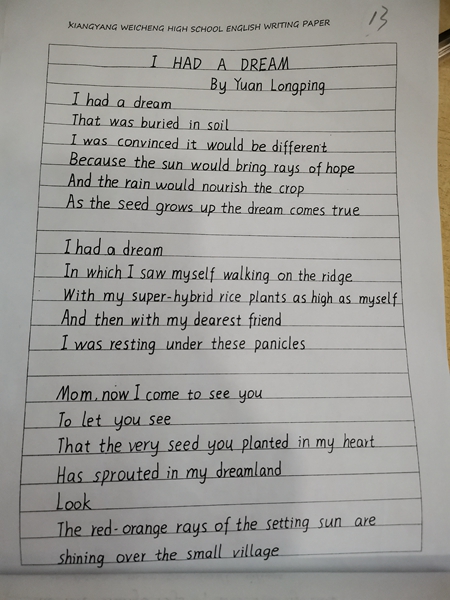 XIANGYANG WEICHENG HIGH SCHOOL ENGLISH WRITING PAPER
13
I HAD A DREAM
By Yuan Longping
I had a dream
That was buried in soil
I was convinced it would be different
Because the sun would bring rays of hope
And the rain would nourish the crop
As the seed grows up the dream comes true
I had a dream
In which I saw myself walking on the ridge
With my super-hybrid rice plants as high as myself
And then with my dearest friend
I was resting under these panicles
Mom, now I come to see you
To let you see
That the very seed you planted in my heart
Has sprouted in my dreamland
Look
The red-orange rays of the setting sun are
shining over the small village